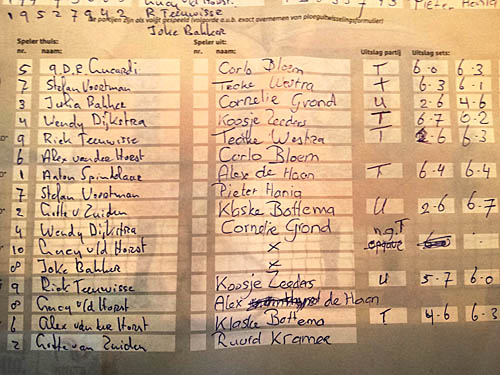 19527942 R Teeuwisse
De partijen zijn als volgt gespeeld (volgorde a.u.b. exact overnemen van ploeguitwisselingsformulier)
Joke Bakker
Speler thuis: Speler uit:
nr. naam: nr. naam: Uitslag partij Uitslag sets:
5 Carlo Bloem T 6-0 6-3
7 Stefan Voortman Tecke Westra T 6-3 6-1
3 Julia Bakker Cornelie Grond U 2-6 4-6
4 Wendy Dijkstra Koosje Leeders T 6-7 0-2
9 Rick Teeuwisse Tecke Westra T 2-6 6-3
6 Alex van der Horst Carlo Bloem
1 Anton Spindelaar Alex de Haan T 6-4 6-4
7 Stefan Voortman Pieter Honig
2 Gitte v Zuiden Klaske Bottema U 2-6 6-7
4 Wendy Dijkstra Cornelie Grond n.g.T
10 Gucy v/d Horst x opgave 6
8 Joke Bakker x
9 Rick Teeuwisse Koosje Leeders U 5-7 6-0
8 Gucy v/d Horst Alex de Haan
6 Alex van der Horst Klaske Bottema T 4-6 6-3
2 Gitte van Zuiden Ruurd Kramer